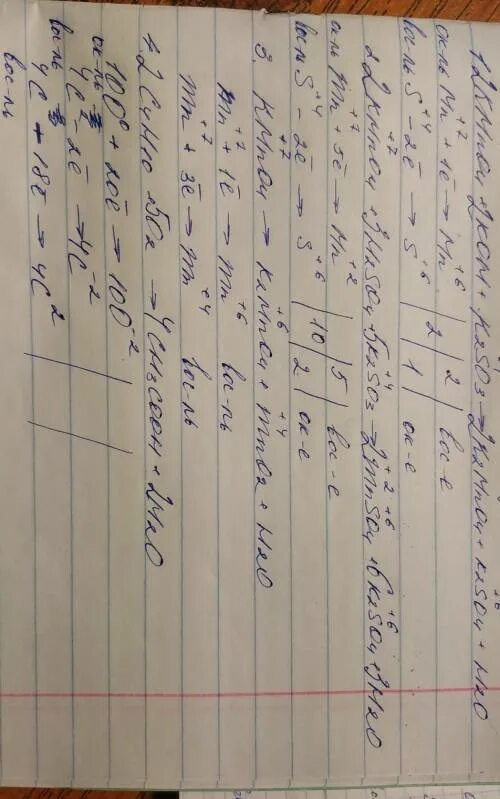 1. 2KMnO4 + 2KOH + K2SO3 → 2K2MnO4 + K2SO4 + H2O
ок-ль Mn+7 + 1ē → Mn+6 | 2 | 2 | вос-е
вос-ль S+4 - 2ē → S+6 | 1 | ок-е
2. 2KMnO4 + 3H2SO4 + 5K2SO3 → 2MnSO4 + 6K2SO4 + 3H2O
ок-ль Mn+7 + 5ē → Mn+2 | 5 | вос-е
вос-ль S+4 - 2ē → S+6 | 10 | 2 | ок-е
3. KMnO4 → K2MnO4 + MnO2 + H2O
Mn+7 + 1ē → Mn+6 вос-ль
Mn+7 + 3ē → Mn+4 вос-ль
4. 2C4H10 + 5O2 → 4CH3COOH + 2H2O
10O0 + 20ē → 10O-2
ок-ль
4C - 2ē → 4C-2
вос-ль
4C + 18ē → 4C2
вос-ль